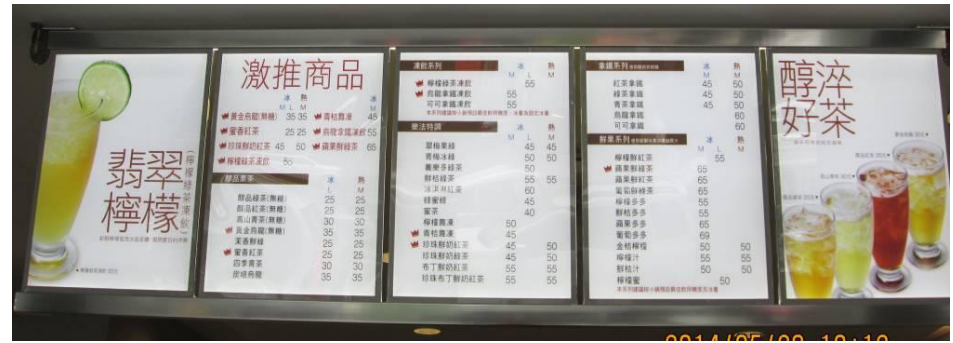 翡翠
檸檬
(檸檬綠茶凍飲)
激推商品
冰 熱 冰
M L M M
黃金烏龍(無糖) 35 35 青桔蕎凍 45
蜜香紅茶 25 25 烏龍拿鐵凍飲 55
珍珠鮮奶紅茶 45 50 蘋果鮮綠茶 65
檸檬綠茶凍飲 55
冰 熱
L M
醇品綠茶(無糖) 25 25
醇品紅茶(無糖) 25 25
高山青茶(無糖) 30 30
黃金烏龍(無糖) 35 35
茉香鮮綠 25 25
蜜香紅茶 25 25
四季青茶 30 30
炭焙烏龍 35 35
凍飲系列
冰 熱
M L M
檸檬綠茶凍飲 55
烏龍拿鐵凍飲 55
可可拿鐵凍飲 55
樂法特調
翠梅果綠 45 45
青梅冰綠 50 50
養樂多綠茶 50
鮮桔綠茶 55 55
冰淇淋紅茶 60
蜂蜜綠 45
蜜茶 40
檸檬蕎凍 50
青桔蕎凍 45
珍珠鮮奶紅茶 45 50
珍珠鮮奶綠茶 45 50
布丁鮮奶紅茶 55 55
珍珠布丁鮮奶紅茶 55 55
拿鐵系列
冰 熱
M L M
紅茶拿鐵 45 50
綠茶拿鐵 45 50
青茶拿鐵 45 50
烏龍拿鐵 60
可可拿鐵 60
鮮果系列
冰 熱
M L M
檸檬鮮紅茶 55
蘋果鮮綠茶 65
蘋果鮮紅茶 65
葡萄鮮綠茶 65
檸檬多多 55
鮮桔多多 55
蘋果多多 65
葡萄多多 69
金桔檸檬 50 50
檸檬汁 55 55
鮮桔汁 50 50
檸檬蜜 50
醇淬
好茶